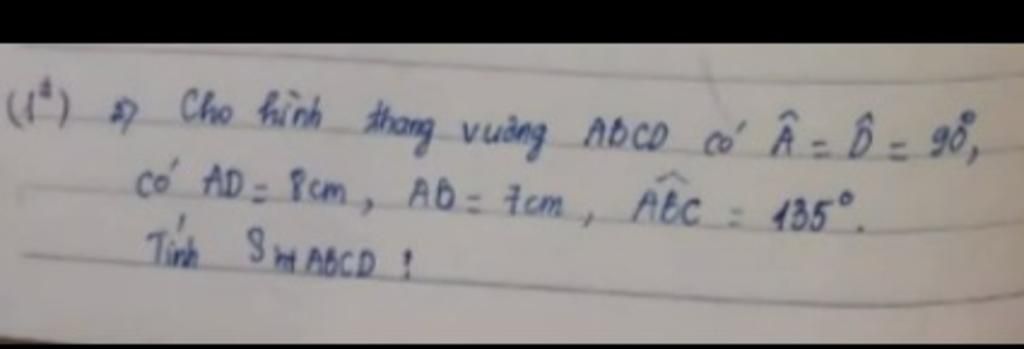 (1đ) 2) Cho hình thang vuông ABCD có Â = D̂ = 90°,
có AD = 8cm, AB = 7cm, ABC = 135°.
Tính S ht ABCD !